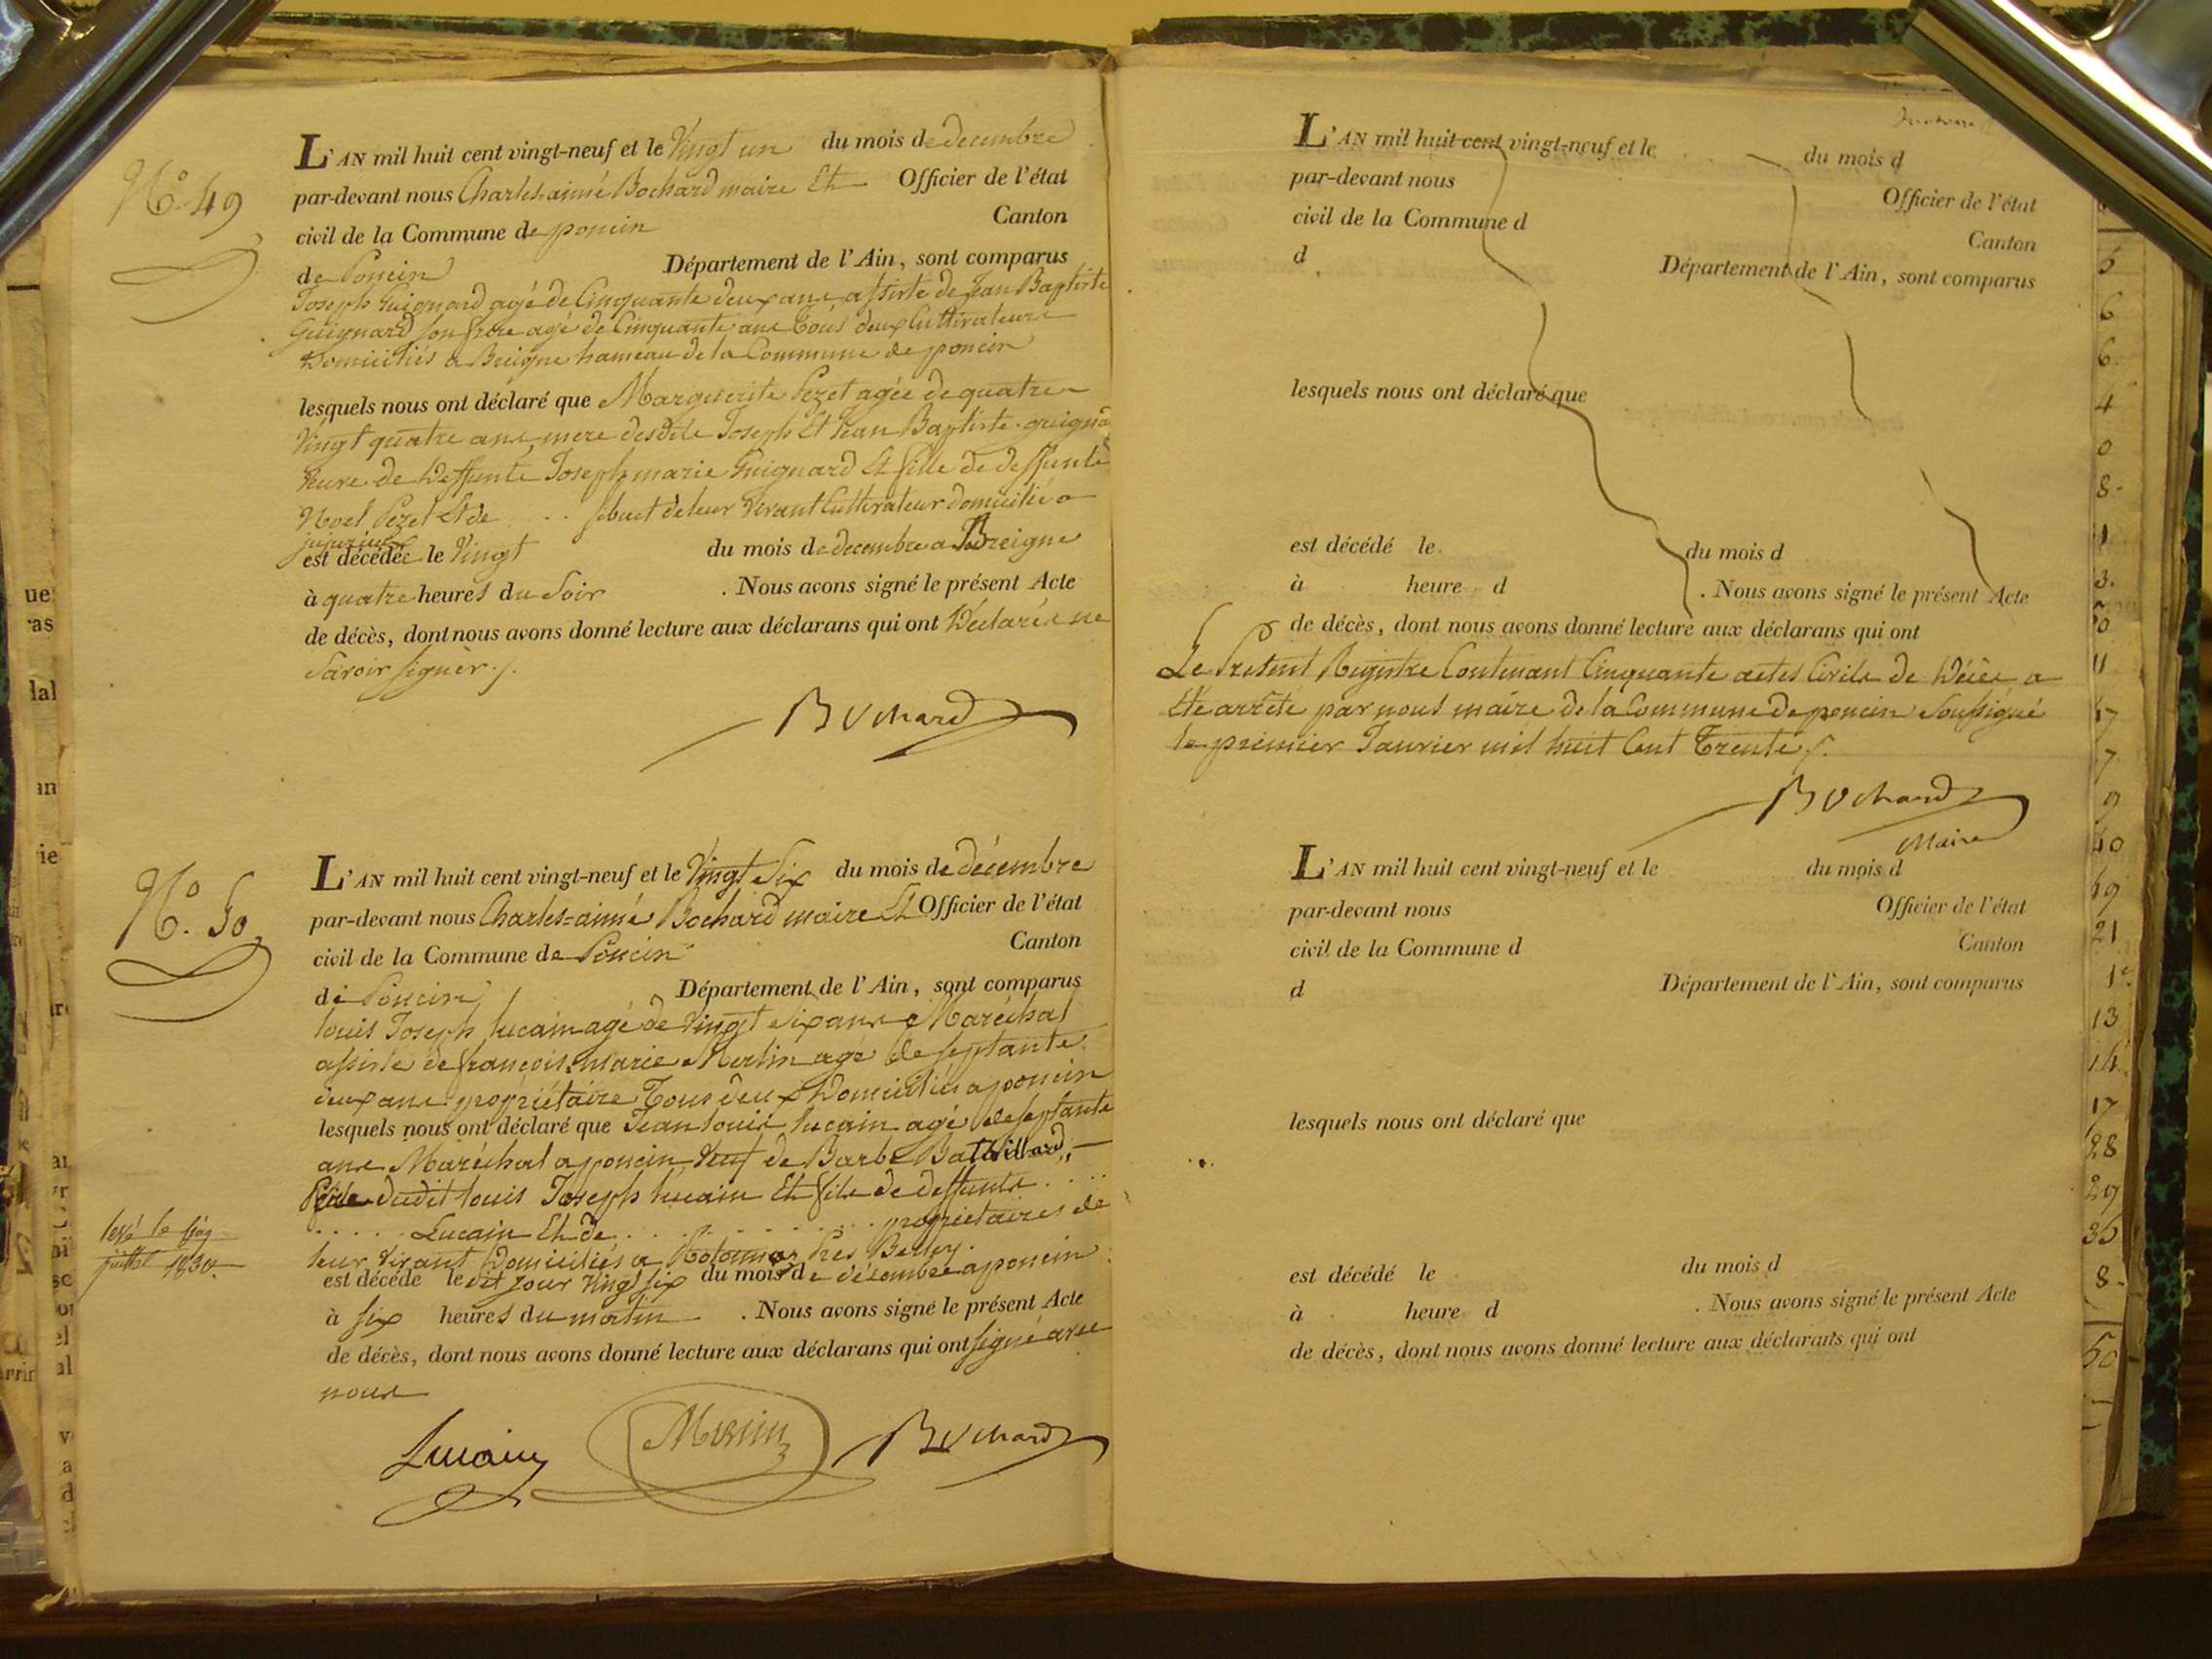 N° 49
L'AN mil huit cent vingt-neuf et le Vingt un du mois de decembre
par-devant nous Charles-aimé Bochard maire Et Officier de l'état
civil de la Commune de poncin Canton
de Poncin Département de l'Ain, sont comparus
Joseph Guignard agé de Cinquante deux ans assisté de Jean Baptiste
Guignard son frere agé de Cinquante ans Tous deux Cultivateurs
Domiciliés a Breigne hameau de la Commune de poncin
lesquels nous ont déclaré que Marguerite Pezet agée de quatre
Vingt quatre ans mere desdits Joseph Et Jean Baptiste guignard
Veuve de Deffunt Joseph marie Guignard Et fille de deffunts
Noel Pezet Et de . . . de leur Vivant Cultivateur domicilié a
jujurieux
est décédée le Vingt du mois de decembre a Breigne
à quatre heures du Soir . Nous avons signé le présent Acte
de décès, dont nous avons donné lecture aux déclarans qui ont Déclarés ne
Savoir signer ./.
Bochard
N° 50
L'AN mil huit cent vingt-neuf et le Vingt Six du mois de décembre
par-devant nous Charles=aimé Bochard maire Et Officier de l'état
civil de la Commune de Poncin Canton
de Poncin Département de l'Ain, sont comparus
louis Joseph lucain agé de Vingt Six ans Maréchal
assisté de françois marie Merlin agé de septante
deux ans propriétaire Tous deux Domiciliés a poncin
lesquels nous ont déclaré que Jean louis lucain agé de septante
ans Maréchal a poncin Veuf de Barbe
Père dudit louis Joseph lucain Et fils de deffunts . . . .
. . . . . Lucain Et de . . . . . . . . propriétaires de
leur Vivant Domiciliés a près Belley.
est décédé le dit jour Vingt six du mois de décembre a poncin
à six heures du matin . Nous avons signé le présent Acte
de décès, dont nous avons donné lecture aux déclarans qui ont signé avec
nous
levé le cinq
juillet 1830
Lucain Merlin Bochard
L'AN mil huit cent vingt-neuf et le du mois d
par-devant nous Officier de l'état
civil de la Commune d Canton
d Département de l'Ain, sont comparus
lesquels nous ont déclaré que
est décédé le du mois d
à heure d . Nous avons signé le présent Acte
de décès, dont nous avons donné lecture aux déclarans qui ont
Le Present Registre Contenant Cinquante actes Civils de Décès a
Eté arrêté par nous maire de la Commune de poncin Soussigné
le premier Janvier mil huit Cent Trente ./.
Bochard
Maire
L'AN mil huit cent vingt-neuf et le du mois d
par-devant nous Officier de l'état
civil de la Commune d Canton
d Département de l'Ain, sont comparus
lesquels nous ont déclaré que
est décédé le du mois d
à heure d . Nous avons signé le présent Acte
de décès, dont nous avons donné lecture aux déclarans qui ont
5
6
6
4
0
8
11
7
9
21
13
14
17
28
29
8
50